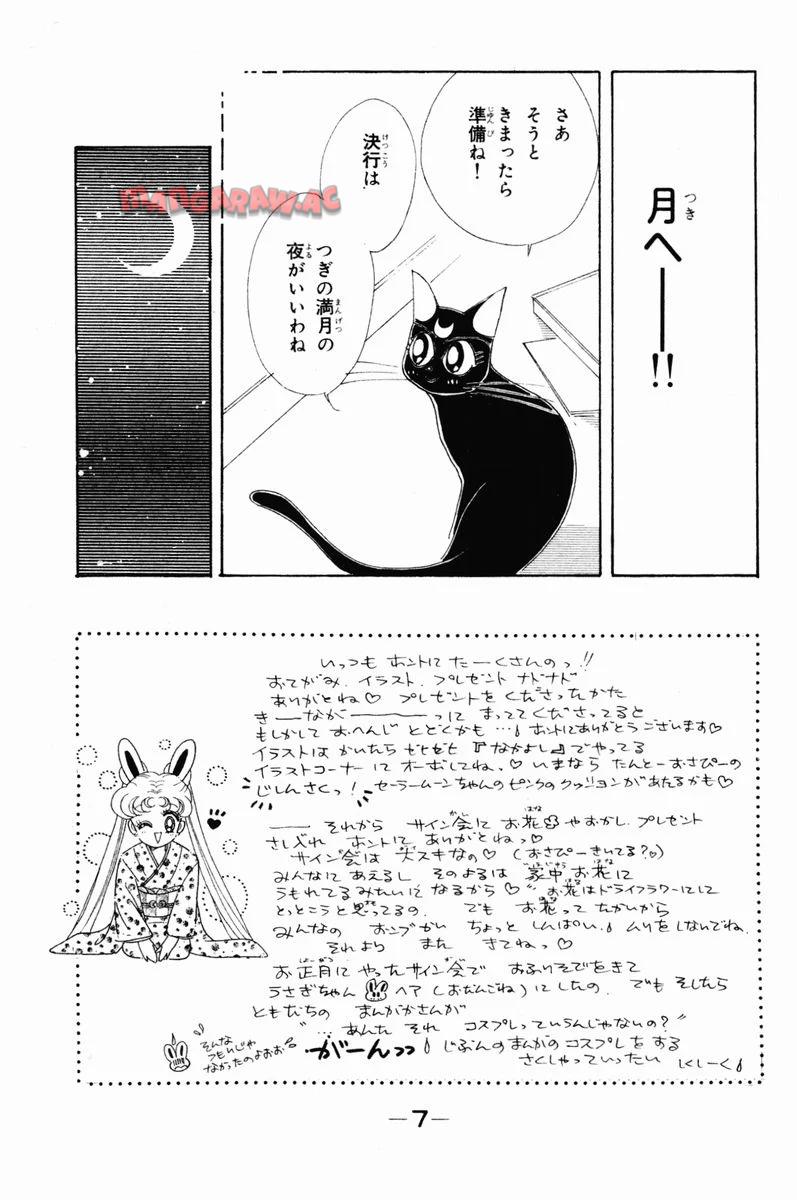 月へ——!!
さあ
そうと
きまったら
準備ね!
決行は
つぎの満月の
夜がいいわね
MANGARAW.AC
いつも ホントに たーくさんのっ!!
おてがみ、イラスト、プレゼント ナドナド
ありがとね♡ プレゼントを くださったかた
きーながーーーっに まっててくださってると
もしかして おへんじ とどくかも…♪ ホントにありがとうございます♡
イラストは かいたら ゼヒゼヒ『なかよし』でやってる
イラストコーナーに オーボしてねっ♡ いまなら たんとーおさぴーの
じしんさくっ! セーラームーンちゃんのピンクのクッションがあたるかも♡
—— それから サイン会に お花 やおかし、プレゼント
さし入れ ホントに ありがとねっ♡
サイン会は 大スキなの♡(おさぴーきいてる?♡)
みんなに あえるし そのよるは 家中 お花に
うもれてるみたいに なるから♡ お花はドライフラワーにして
とっとこうと思ってるの。 でも お花って たかいから
みんなの おこづかい ちょっと しんぱい。♪ ムリをしないでね。
それより また きてねっ♡
お正月に やったサイン会で おふりそでをきて
うさぎちゃん ヘア(おだんごね)にしたの。 でも そしたら
ともだちの まんがかさんが
"…あんた それ コスプレっていうんじゃないの?"
がーんっっ じぶんのまんがのコスプレをする
さくしゃっていったい しくしーく
そんな
つもりじゃ
なかったのよおお
—7—